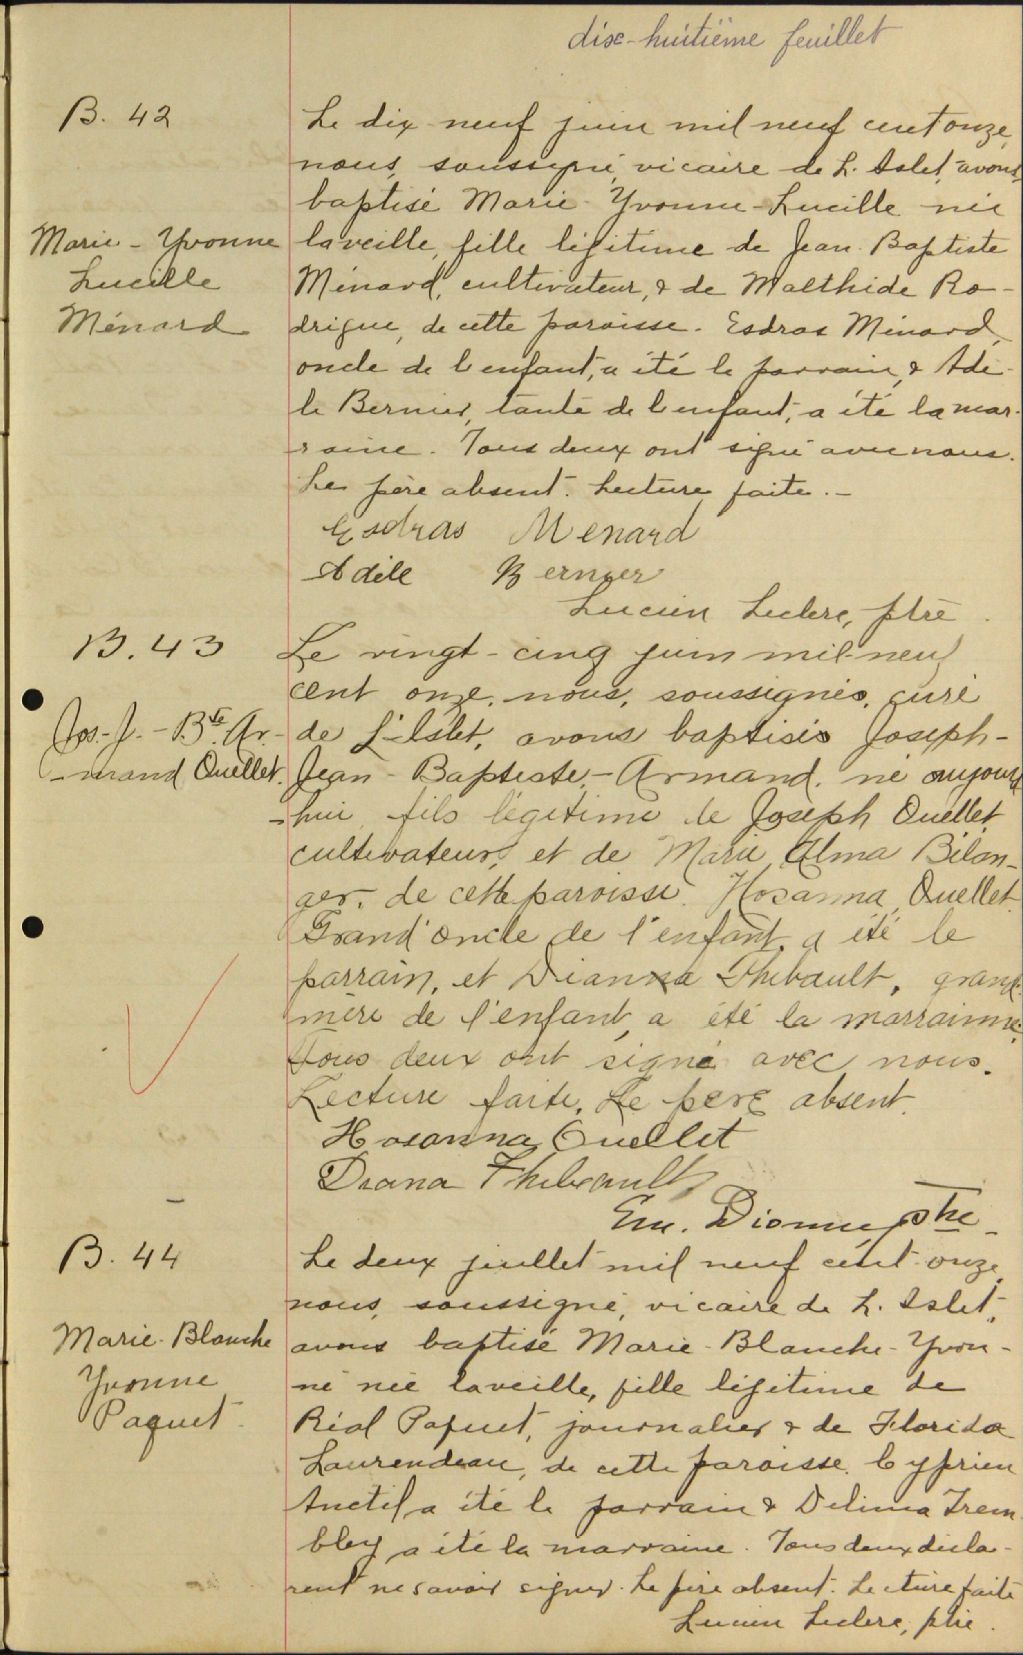 dix-huitième feuillet
B. 42
Marie-Yvonne
Lucille
Ménard
Le dix-neuf juin mil neuf cent onze,
nous, soussigné, vicaire de L'Islet, avons
baptisé Marie-Yvonne-Lucille née
la veille, fille légitime de Jean-Baptiste
Ménard, cultivateur, & de Malthide Ro-
drigue, de cette paroisse. Esdras Ménard,
oncle de l'enfant, a été le parrain, & Adè-
le Bernier, tante de l'enfant, a été la mar-
raine. Tous deux ont signé avec nous.
Le père absent. Lecture faite.-
Esdras Menard
Adèle Bernier
Lucien Leclerc, ptre.
B. 43
Jos.-J.-Bte Ar-
-mand Ouellet.
Le vingt-cinq juin mil-neuf
cent onze, nous, soussignés, curé
de L'Islet, avons baptisés Joseph-
Jean-Baptiste-Armand, né aujourd
-hui fils légitime de Joseph Ouellet
cultivateur, et de Marie Alma Bélan-
ger, de cette paroisse. Hosanna Ouellet
Grand'oncle de l'enfant, a été le
parrain, et Dianna Thibault, grand-
mère de l'enfant, a été la marrainne.
Tous deux ont signé avec nous.
Lecture faite. Le père absent.
Hosanna Ouellet
Diana Thibault
Em. Dionne, ptre
B. 44
Marie-Blanche
Yvonne
Paquet
Le deux juillet mil neuf cent-onze,
nous, soussigné, vicaire de L'Islet,
avons baptisé Marie-Blanche-Yvon-
ne née la veille, fille légitime de
Réal Paquet, journalier & de Florida
Laurendeau, de cette paroisse. Cyprien
Anctil a été le parrain & Delima Trem-
bley a été la marraine. Tous deux décla-
rent ne savoir signer. Le père absent. Lecture faite
Lucien Leclerc, ptre.